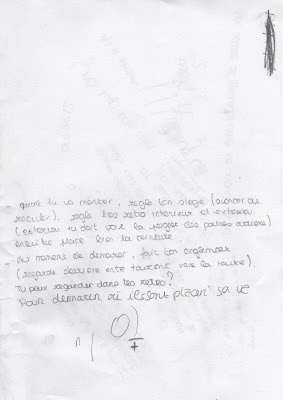 quant tu va monter, regle ton siege (avancer ou
reculer). regle tes retro interieur et exterieur
(exterieur tu doit voir la poigner des portes arriere)
ensuite place bien la ceinture.
Au moment de demarer, fait ton anglemort
(regarde derriere en te tournent vers la route)
Tu peux regarder dans les retros?
Pour demarer où placer sa